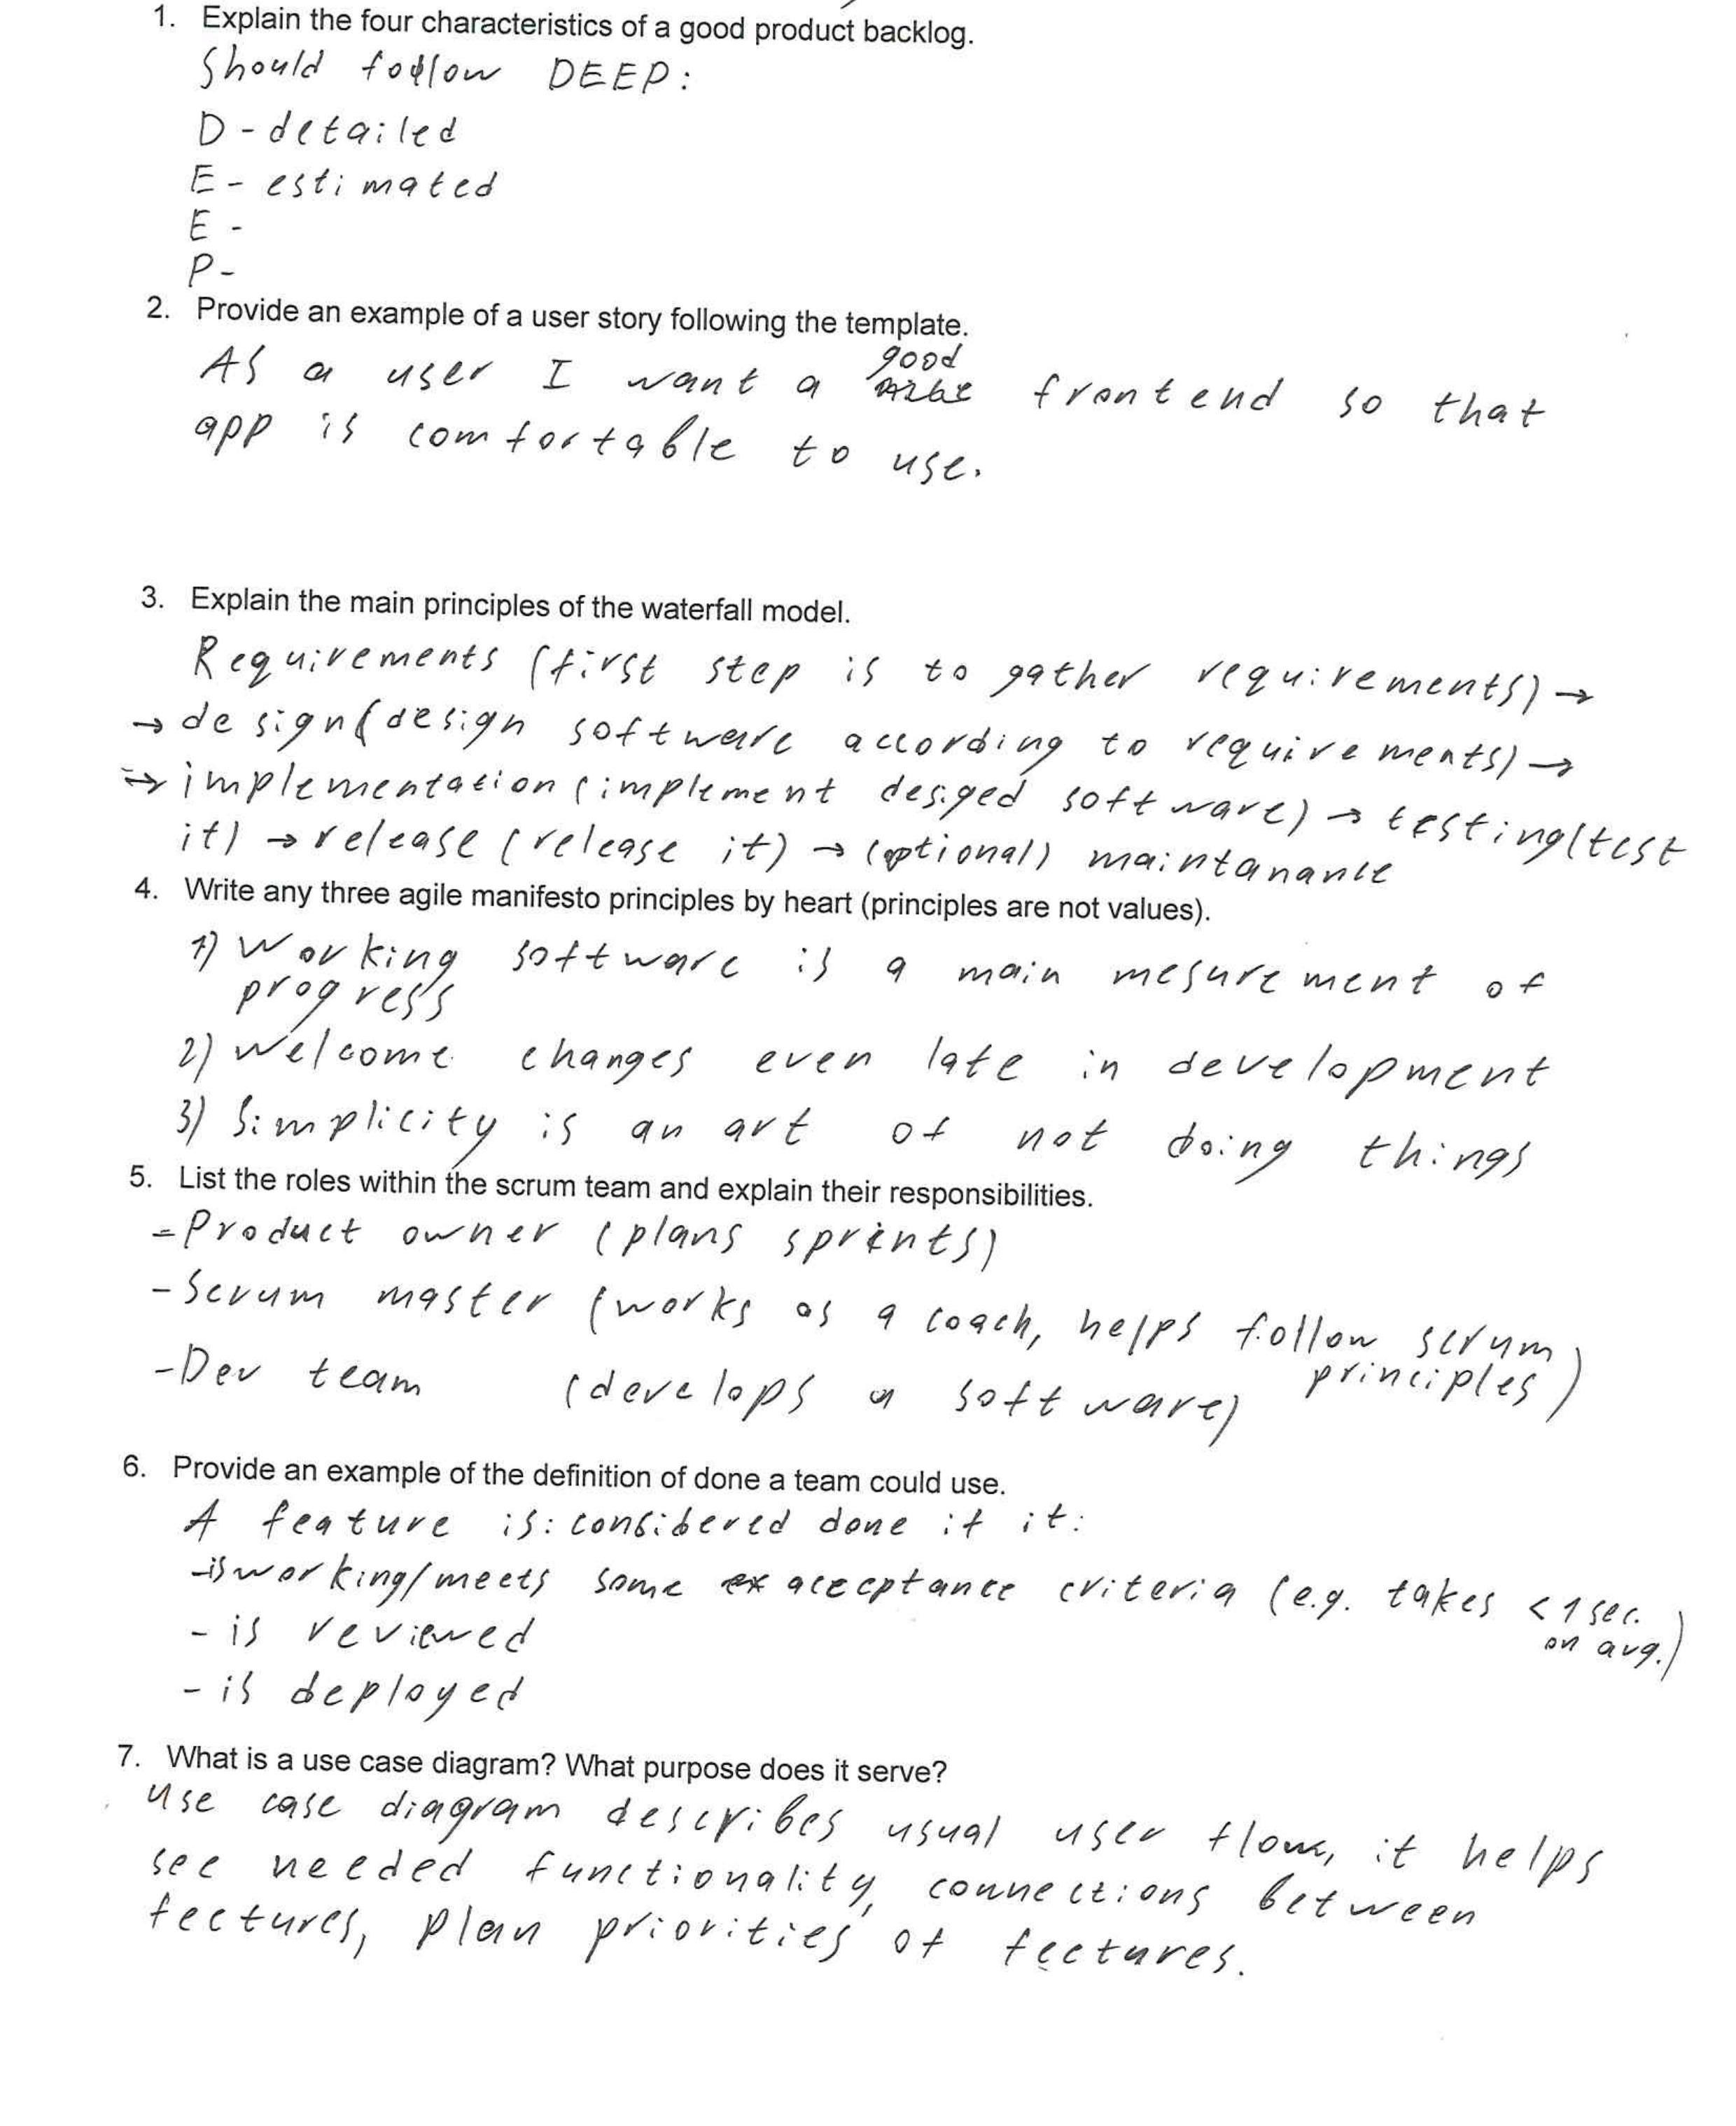 1. Explain the four characteristics of a good product backlog.
Should follow DEEP:
D - detailed
E - estimated
E -
P -
2. Provide an example of a user story following the template.
good
As a user I want a frontend so that
app is comfortable to use.
3. Explain the main principles of the waterfall model.
Requirements (first step is to gather requirements) →
→ design (design software according to requirements) →
→ implementation (implement desiged software) → testing (test
it) → release (release it) → (optional) maintanance
4. Write any three agile manifesto principles by heart (principles are not values).
1) Working software is a main mesurement of
progress
2) Welcome changes even late in development
3) Simplicity is an art of not doing things
5. List the roles within the scrum team and explain their responsibilities.
- Product owner (plans sprints)
- Scrum master (works as a coach, helps follow scrum
principles)
- Dev team (develops a software)
6. Provide an example of the definition of done a team could use.
A feature is: considered done if it:
- is working/meets some ex acceptance criteria (e.g. takes < 1 sec.
on avg.)
- is reviewed
- is deployed
7. What is a use case diagram? What purpose does it serve?
Use case diagram describes usual user flow, it helps
see needed functionality, connections between
fectures, plan priorities of fectures.